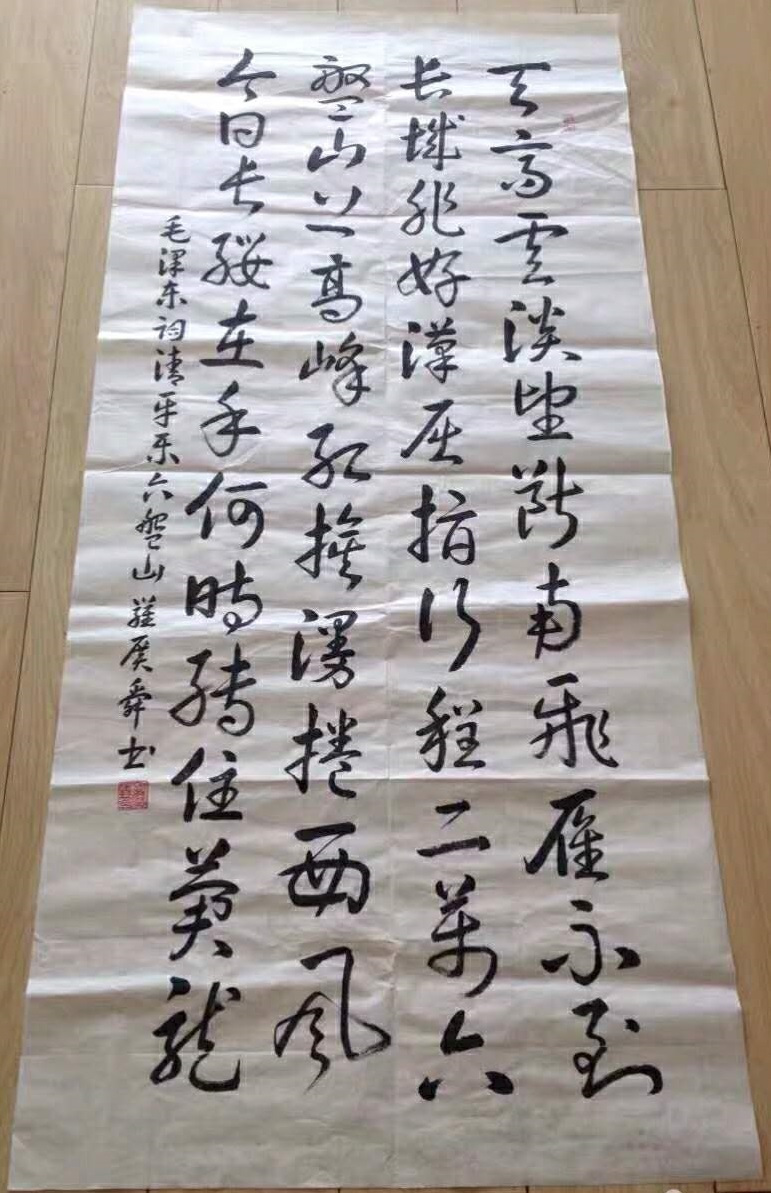 天高雲淡望斷南飛雁不到
长城非好漢屈指行程二萬六
盤山上高峰紅旗漫捲西風
今日长纓在手何時縛住蒼龍
毛泽东词清平乐六盘山 舜书